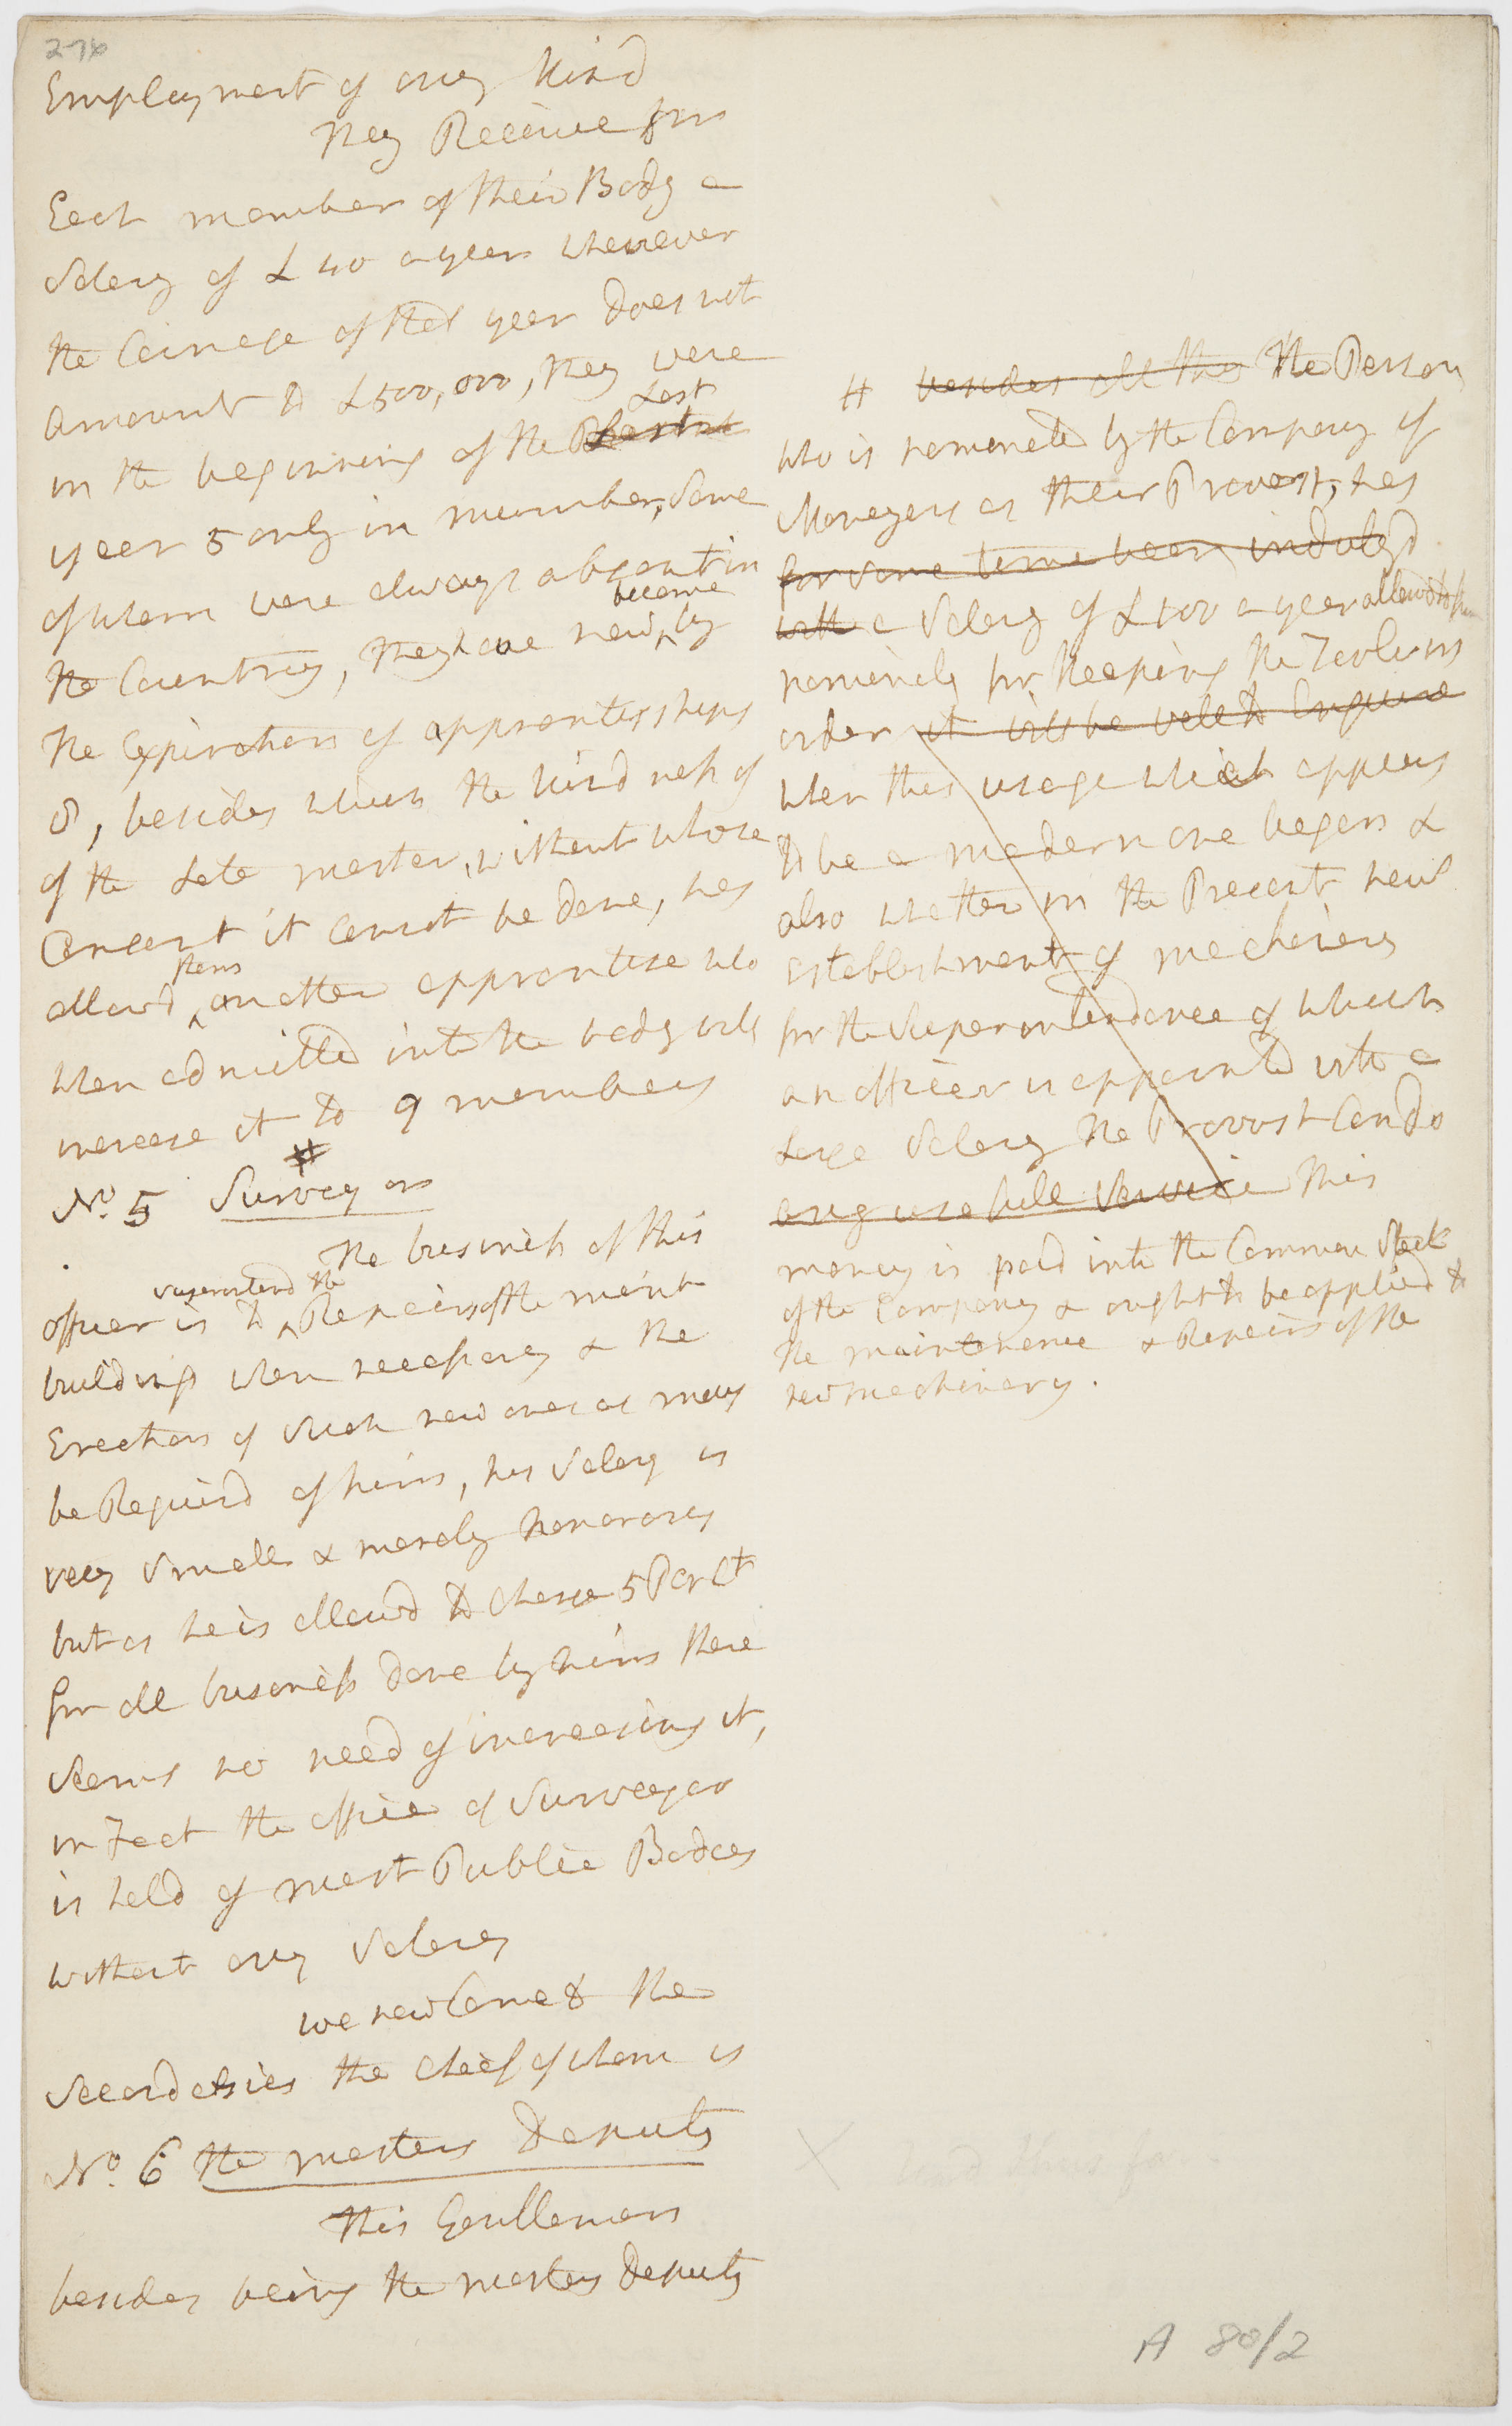 276
Employment of any kind
they Receive from
Each member of their Body a
Salary of £40 a year whenever
the Coinage of that year does not
amount to £500,000, they were
Last
in the beginning of the
year 5 only in number, Some
of whom were always absent in
become
the Country, they have now by
the Expiration of apprentisships
8, besides which the kindness of
of the Late master, without whose
Consent it Cannot be done, has
them
allowd another apprentise who
when admitted into the body will
increase it to 9 members
#
No. 5 Surveyor
the business of this
superintend the
officer is to Repairs of the mint
buildings when necessary & the
Erection of Such new ones as may
be Requird of him, his Salary is
very Small & merely honorary
but as he is allowd to charge 5 Per Ct
for all business done by him there
Seems no need of increasing it,
in Fact the office of Surveyor
is held of most Public Bodies
without any Salary
we now Come to the
Secondaries the cheif of whom is
No. 6 the masters Deputy
this Gentleman
besides being the masters Deputy
# besides all this The Person
who is nominated by the Company of
Moneyers as their Provost, has
for some time been indulgd
with a Salary of £100 a year allowd to him
nominaly for Keeping the Tools in
order it will be well to Enquire
when this usage which appears
to be a modern one began &
also whether in the Present new
establishment of machinery
for the Superintendance of which
an officer is appointed with a
Large Salary the Provost Can do
any usefull Service This
money is paid into the Common Stock
of the Company & ought to be applied to
the maintenance & Repairs of the
new machinery.
X and thus far
A 80/2